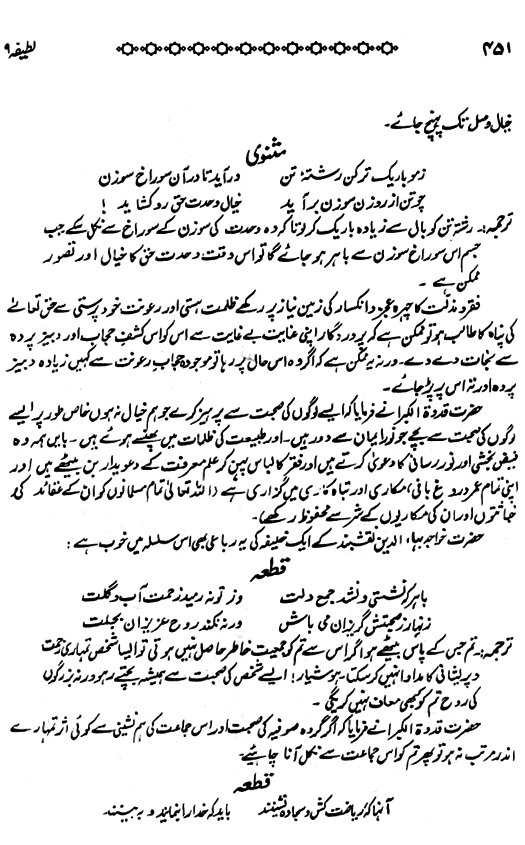 ۴۵۱ لطیفہ ۹
خیال وصل تک پہنچ جائے۔
مثنوی
زمو باریک تر کن رشتۂ تن در آید تا در آن سوراخ سوزن
چو تن از روزن سوزن بر آید خیال وحدت حق رو کشاید !
ترجمہ:۔ رشتہ تن کو بال سے زیادہ باریک کر لو تاکہ وہ وحدت کی سوزن کے سوراخ سے نکل سکے جب
جسم اس سوراخ سوزن سے باہر ہو جائے گا تو اس وقت وحدت حق کا خیال اور تصور
ممکن ہے ۔
فقر و مذلت کا چہرہ عجز و انکسار کی زمین نیاز پر رکھے ظلمت ہستی اور رعونت خود پرستی سے حق تعالےٰ
کی پناہ کا طالب ہو تو ممکن ہے کہ پروردگار اپنی عنایت بے غایت سے اس کو اس کشف حجاب اور دبیز پردہ
سے نجات دے دے۔ ورنہ یہ ممکن ہے کہ اگر وہ اس حال پر رہا تو موجودہ حجاب رعونت سے کہیں زیادہ دبیز
پردہ اور تہ اس پر پڑ جائے۔
حضرت قدوۃ الکبرا نے فرمایا کہ ایسے لوگوں کی صحبت سے پرہیز کرے جو ہم خیال نہ ہوں خاص طور پر ایسے
لوگوں کی صحبت سے بچے جو نور ایمان سے دور ہیں۔ اور طبیعت کی ظلمات میں پھنسے ہوئے ہیں۔ بایں ہمہ وہ
فیض بخشی اور نور رسانی کا دعویٰ کرتے ہیں اور فقر کا لباس پہن کر علم معرفت کے دعویدار بن بیٹھے ہیں اور
اپنی تمام عمر دروغ بافی، مکاری اور تباہ کاری میں گزاری ہے (اللہ تعالیٰ تمام مسلمانوں کو ان کے عقائد کی
خباثتوں اور ان کی مکاریوں کے شر سے محفوظ رکھے)۔
حضرت خواجہ بہاء الدین نقشبند کے ایک خلیفہ کی یہ رباعی بھی اس سلسلہ میں خوب ہے :
قطعہ
باہر کہ نشستی و نشد جمع دلت وز تو نہ رمید زحمت آب و گلت
زنہار ز صحبتش گریزان می باش ورنہ نکند روح عزیزان بحلت
ترجمہ:۔ تم جس کے پاس بیٹھے ہو اگر اس سے تم کو جمعیت خاطر حاصل نہیں ہوتی تو ایسا شخص تمہاری زحمت
و پریشانی کا مداوا نہیں کر سکتا۔ ہوشیار! ایسے شخص کی صحبت سے ہمیشہ بچتے رہو ورنہ بزرگوں
کی روح تم کو کبھی معاف نہیں کرے گی۔
حضرت قدوۃ الکبرا نے فرمایا کہ اگر گروہ صوفیہ کی صحبت اور اس جماعت کی ہم نشینی سے کوئی اثر تمہارے
اندر مرتب نہ ہو تو پھر تم کو اس جماعت سے نکل آنا چاہیئے۔
قطعہ
آنہا کہ ریاضت کش و سجادہ نشینند باید کہ خدا را بنمایند و بہ بینند۔